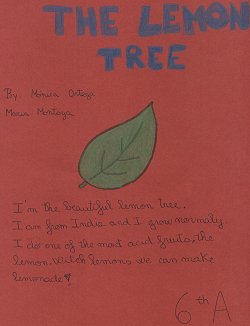 THE LEMON
TREE
By: Monica Ortega
Maria Montoya
I'm the beautiful lemon tree.
I am from India and I grow normaly.
I do one of the most acid fruits, the
lemon. Witch lemons we can make
lemonade
6th A